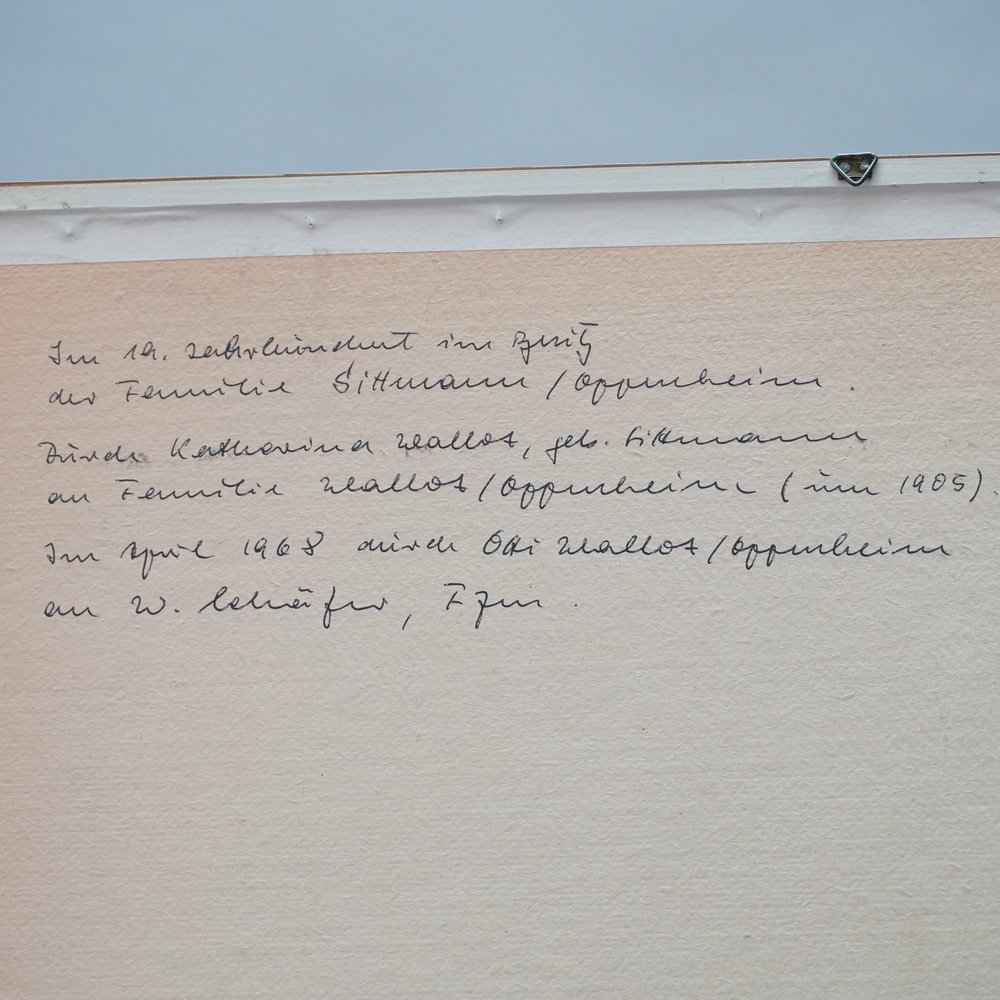 Im 19. Jahrhundert im Besitz
der Familie Sittmann / Oppenheim.
Durch Katharina Wallot, geb. Sittmann
an Familie Wallot / Oppenheim (um 1905).
Im April 1968 durch Otti Wallot / Oppenheim
an W. Schäfer, Ffm.